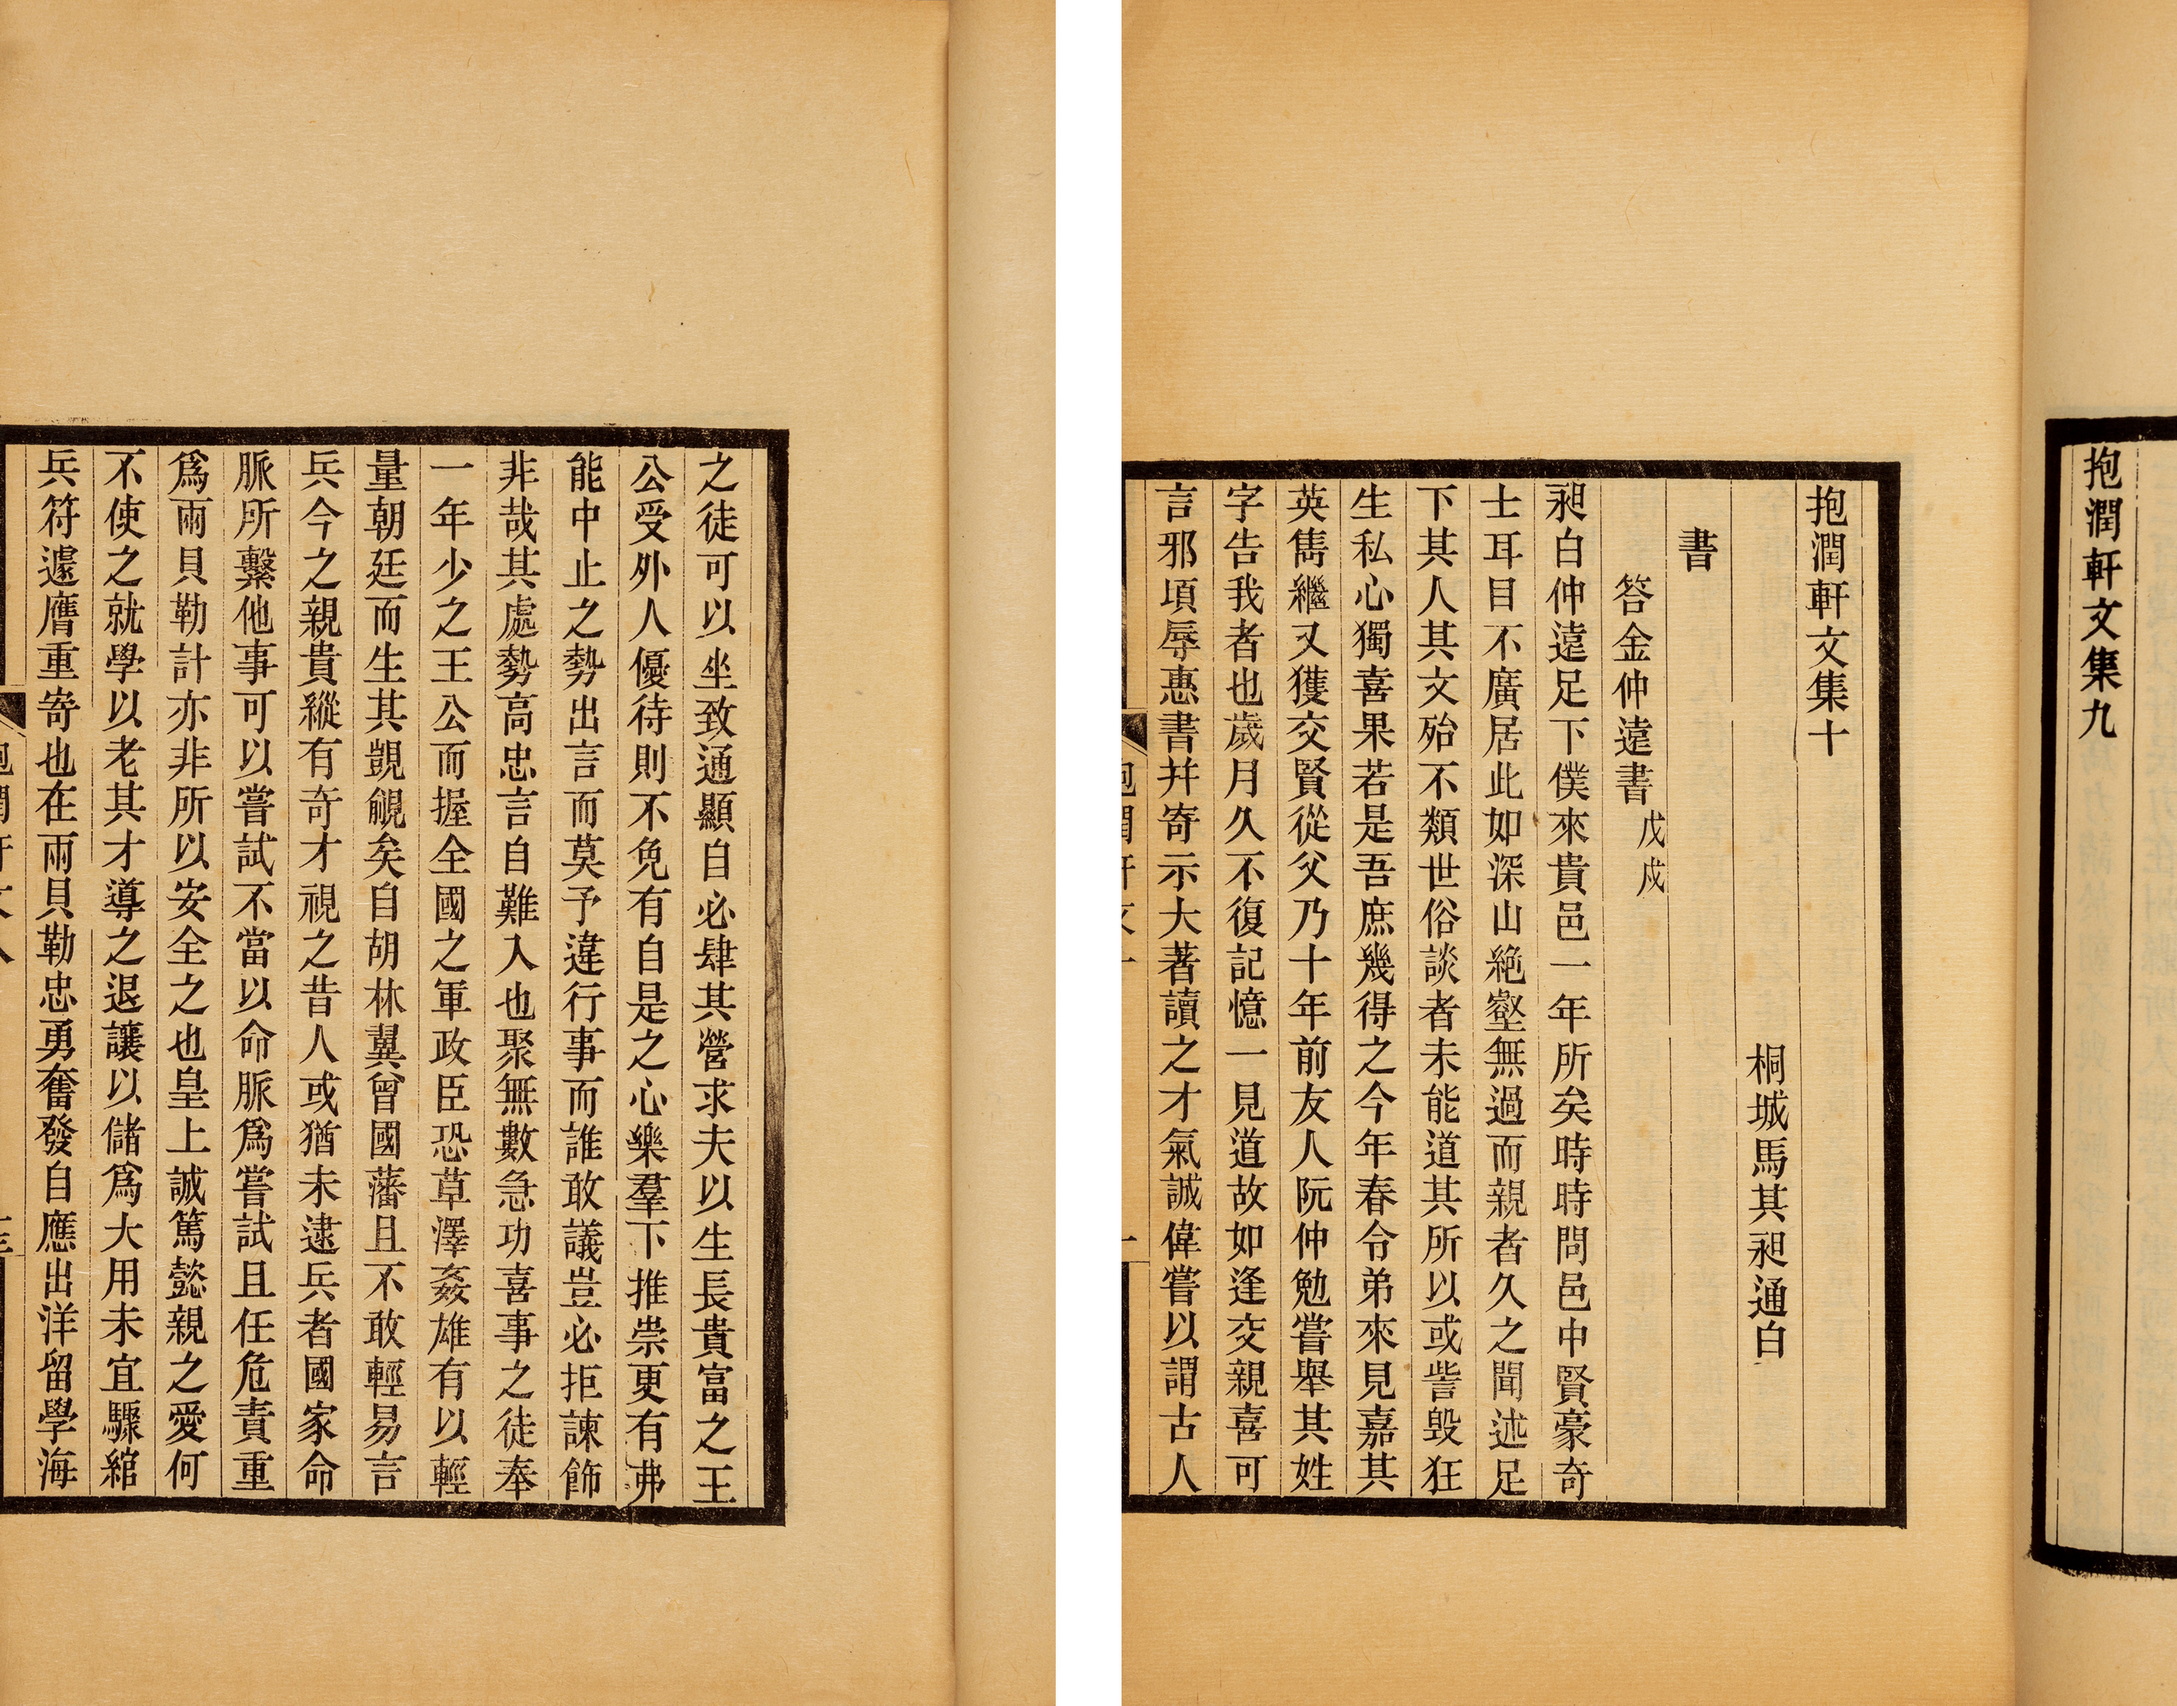 抱潤軒文集九
抱潤軒文集十
桐城馬其昶通白
書
答金仲遠書戊戌
昶白仲遠足下僕來貴邑一年所矣時時問邑中賢豪奇
士耳目不廣居此如深山絶壑無過而親者久之聞述足
下其人其文殆不類世俗談者未能道其所以或訾毁狂
生私心獨喜果若是吾庶幾得之今年春令弟來見嘉其
英雋繼又獲交賢從父乃十年前友人阮仲勉嘗舉其姓
字告我者也歲月久不復記憶一見道故如逢交親喜可
言邪頃辱惠書并寄示大著讀之才氣誠偉嘗以謂古人
之徒可以坐致通顯自必肆其營求夫以生長貴富之王
公受外人優待則不免有自是之心樂羣下推崇更有弗
能中止之勢出言而莫予違行事而誰敢議豈必拒諫飾
非哉其處勢高忠言自難入也聚無數急功喜事之徒奉
一年少之王公而握全國之軍政臣恐草澤姦雄有以輕
量朝廷而生其覬覦矣自胡林翼曾國藩且不敢輕易言
兵今之親貴縱有奇才視之昔人或猶未逮兵者國家命
脈所繫他事可以嘗試不當以命脈爲嘗試且任危責重
爲兩貝勒計亦非所以安全之也皇上誠篤懿親之愛何
不使之就學以老其才導之退讓以儲爲大用未宜驟綰
兵符遽膺重寄也在兩貝勒忠勇奮發自應出洋留學海